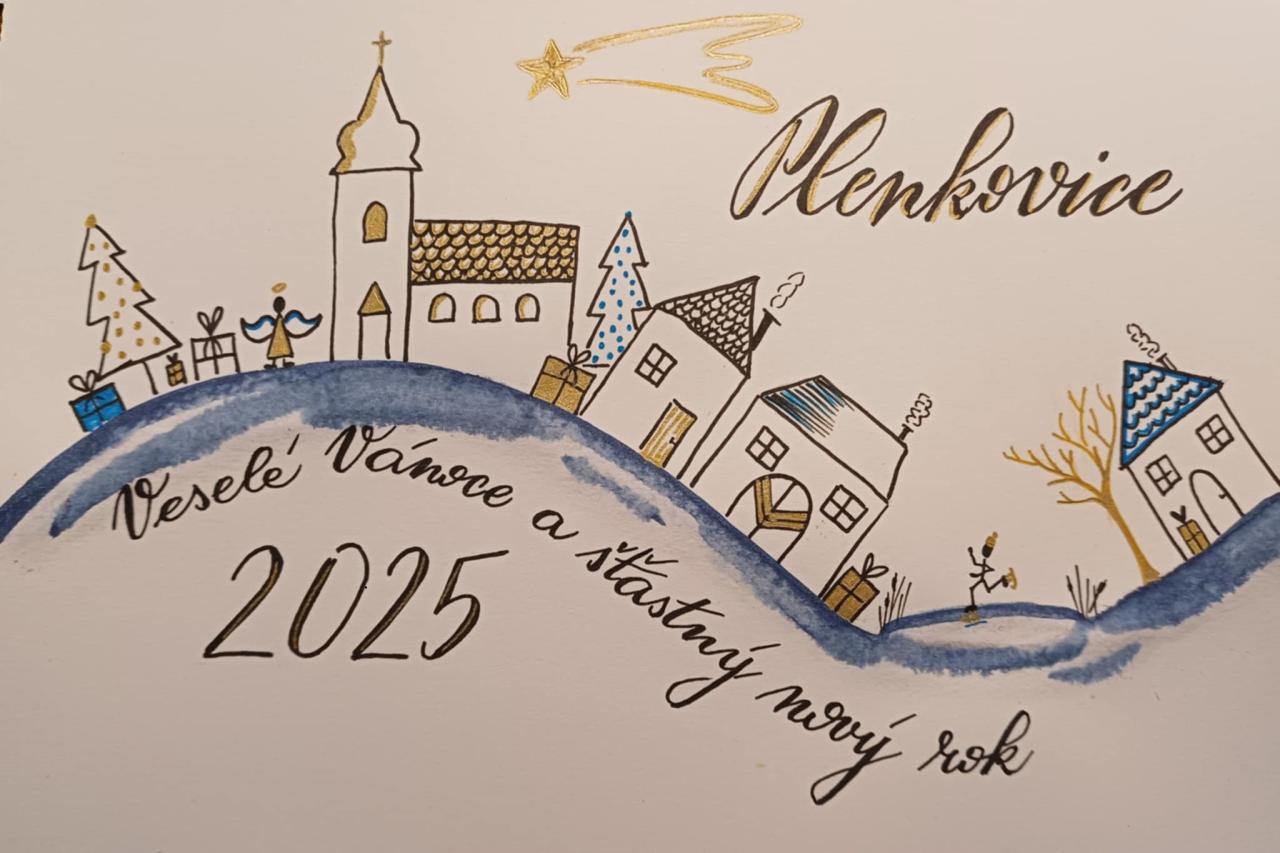 Plenkovice
Veselé Vánoce a šťastný nový rok
2025